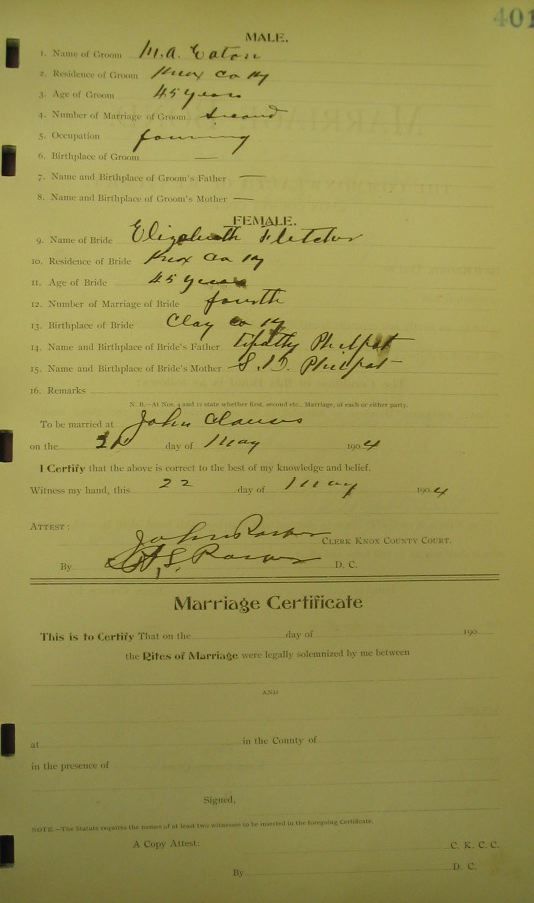 401
MALE.
1. Name of Groom M. A. Eaton
2. Residence of Groom Knox Co Ky
3. Age of Groom 45 years
4. Number of Marriage of Groom Second
5. Occupation farming
6. Birthplace of Groom —
7. Name and Birthplace of Groom's Father —
8. Name and Birthplace of Groom's Mother —
FEMALE.
9. Name of Bride Elizabeth Fletcher
10. Residence of Bride Knox Co Ky
11. Age of Bride 45 years
12. Number of Marriage of Bride fourth
13. Birthplace of Bride Clay Co Ky
14. Name and Birthplace of Bride's Father Philpot
15. Name and Birthplace of Bride's Mother Philpot
16. Remarks
N. B.—At Nos. 4 and 12 state whether first, second etc., Marriage, of each or either party.
To be married at John
on the day of May 1904
I Certify that the above is correct to the best of my knowledge and belief.
Witness my hand, this 22 day of May 1904
ATTEST:
John
CLERK KNOX COUNTY COURT.
By D. C.
Marriage Certificate
This is to Certify That on the day of 190
the Rites of Marriage were legally solemnized by me between
AND
at in the County of
in the presence of
Signed,
NOTE.—The Statute requires the names of at least two witnesses to be inserted in the foregoing Certificate.
A Copy Attest: C. K. C. C.
By D. C.